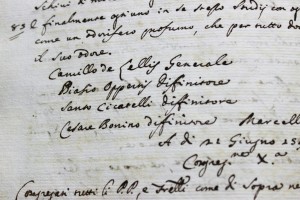 83 E finalmente ogniuno in se stesso studij con og
come un odorifero profumo, che per tutto do
il suo odore.
Camillo de Lellis Generale
Biasio Opperti Difinitore
Santo Cicatelli difinitore
Cesare Bonino difinitore
Marcell
A di 21 Giugno 15
Congreg.ne X.a
Congregati tutti li P.P. e Fratelli come di sopra ne